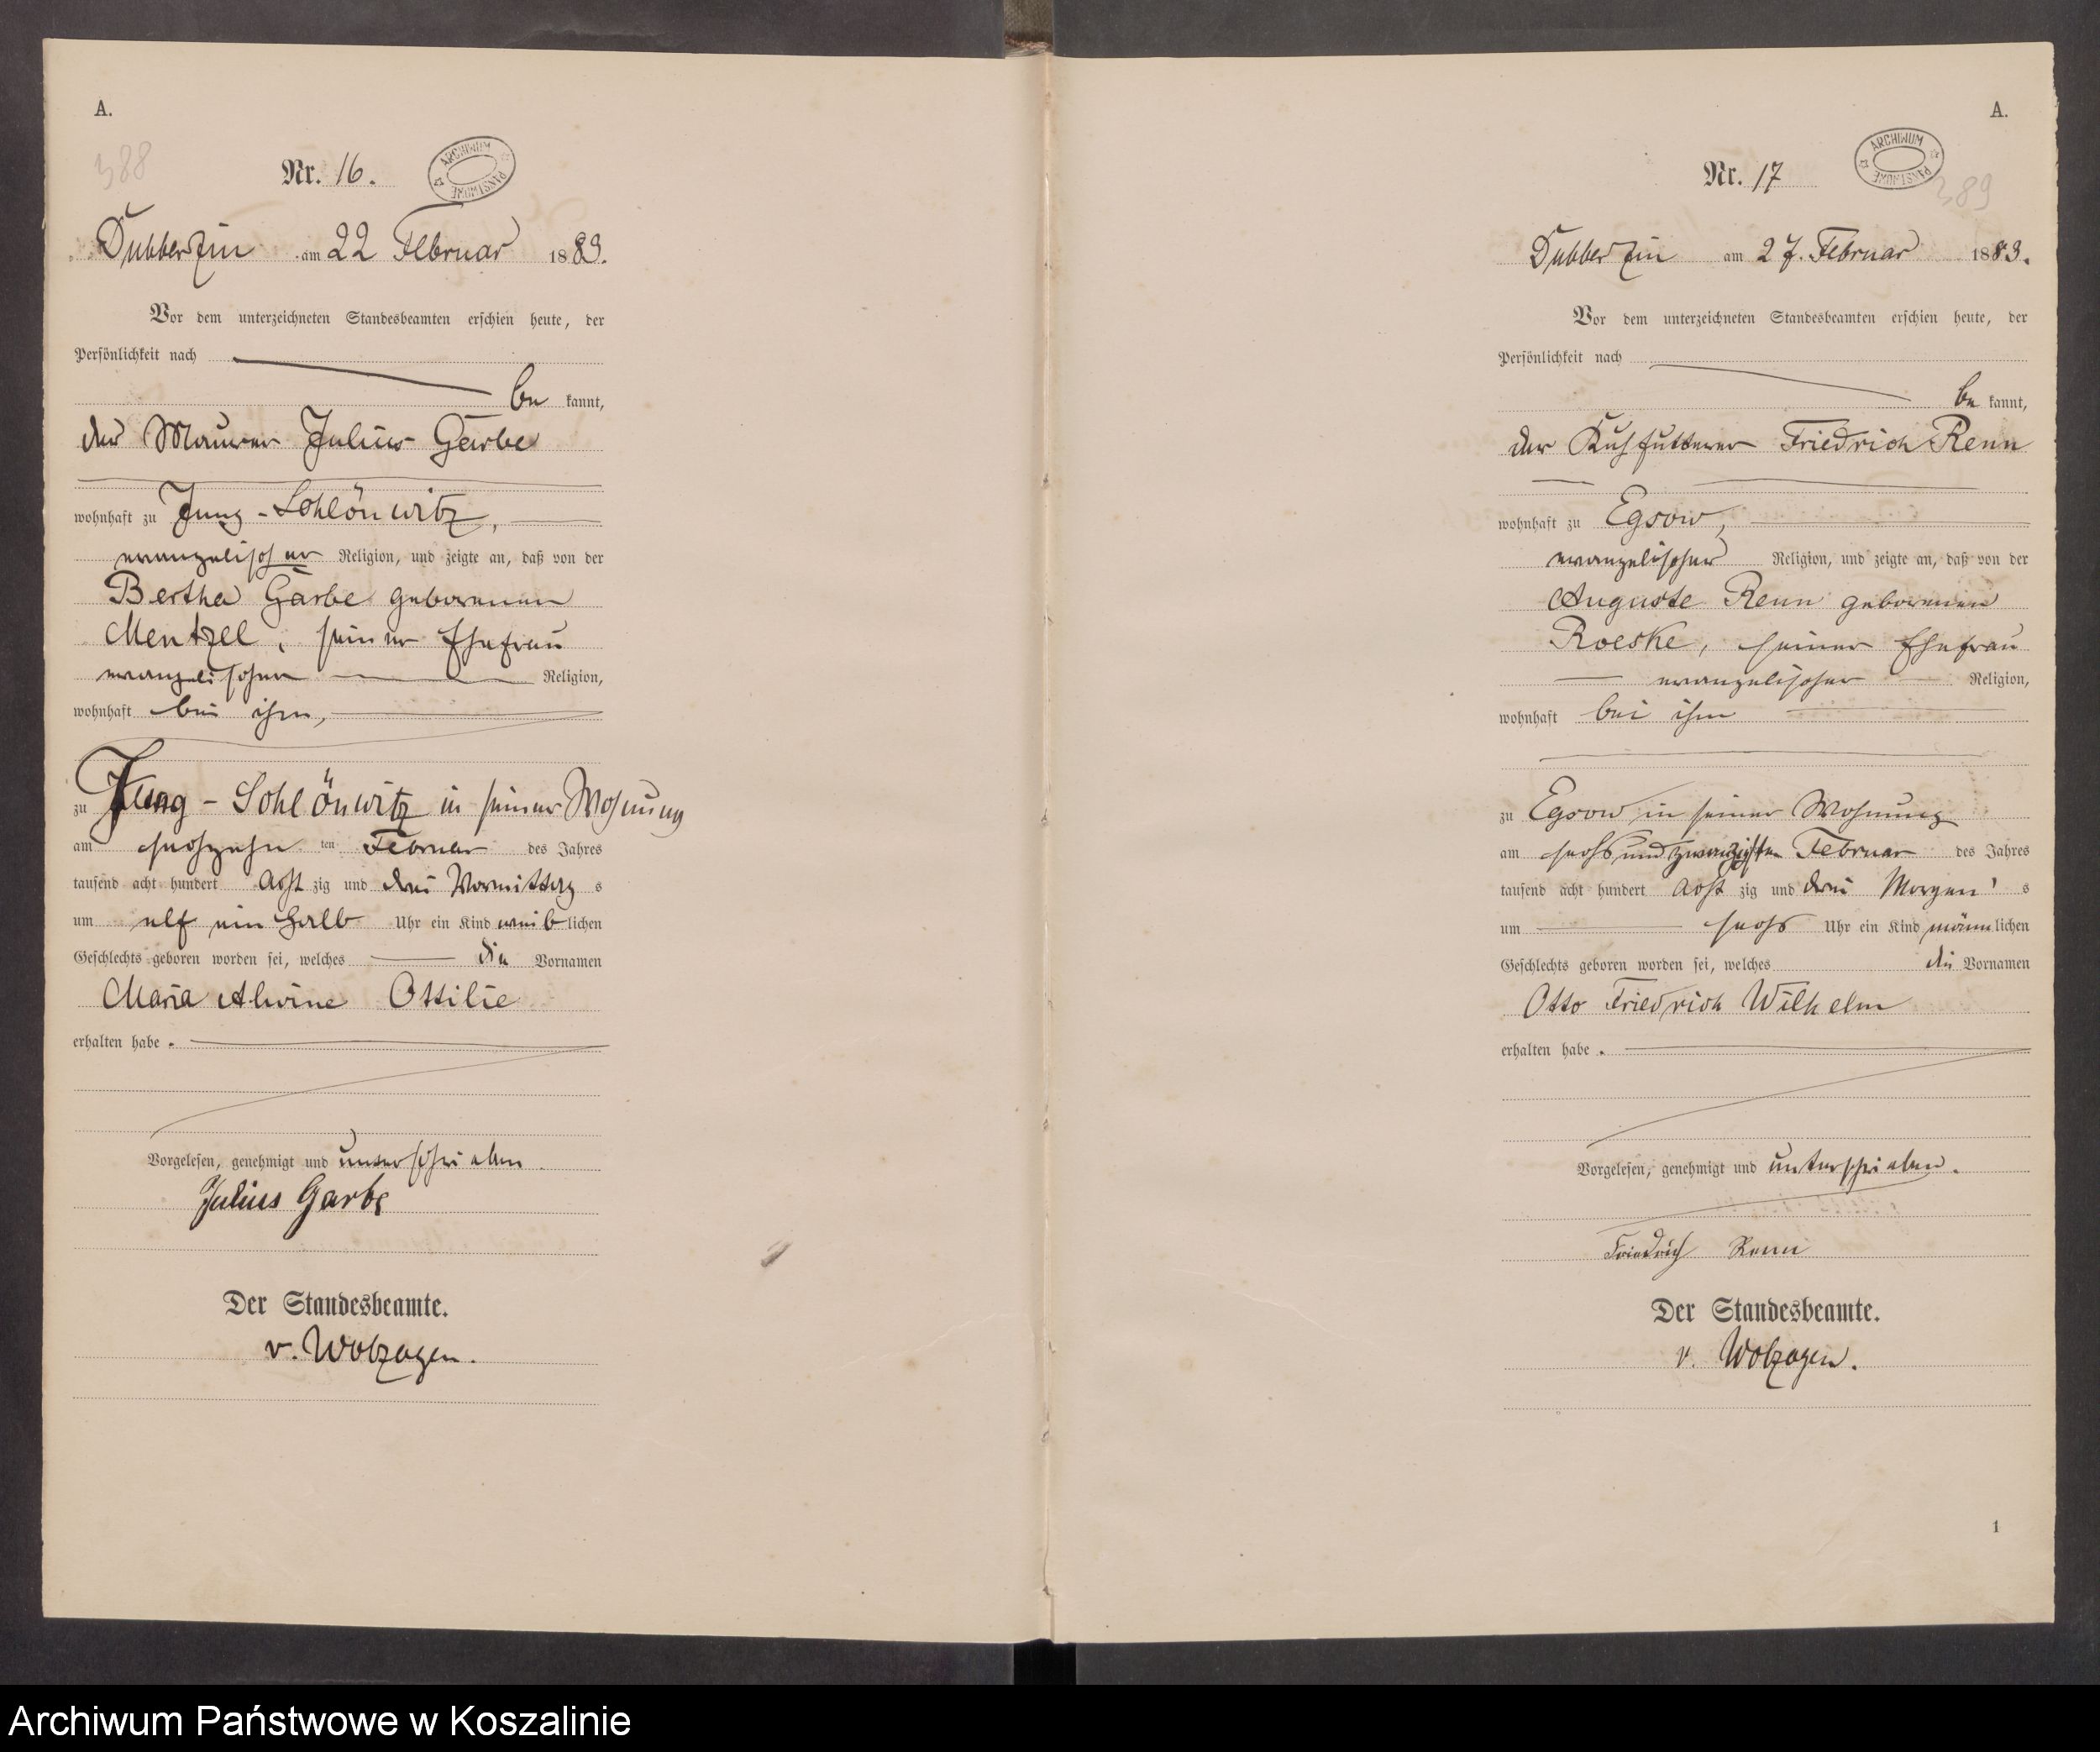 A.
388
Nr. 16.
ARCHIWUM PAŃSTWOWE
Dubberzin am 22 Februar 1883.
Vor dem unterzeichneten Standesbeamten erschien heute, der
Persönlichkeit nach
be kannt,
der Maurer Julius Garbe
wohnhaft zu Jung-Schlönwitz,
evangelischer Religion, und zeigte an, daß von der
Bertha Garbe geborenen
Mentzel, seiner Ehefrau
evangelischer Religion,
wohnhaft bei ihm,
zu Jung-Schlönwitz in seiner Wohnung
am sechszehn ten Februar des Jahres
tausend acht hundert acht zig und drei Vormittag s
um elf ein halb Uhr ein Kind weib lichen
Geschlechts geboren worden sei, welches die Vornamen
Maria Alwine Ottilie
erhalten habe.
Vorgelesen, genehmigt und unterschrieben
Julius Garbe
Der Standesbeamte.
v. Wolzogen.
A.
Nr. 17
ARCHIWUM PAŃSTWOWE
389
Dubberzin am 27. Februar 1883.
Vor dem unterzeichneten Standesbeamten erschien heute, der
Persönlichkeit nach
be kannt,
der Kuhfutterer Friedrich Renn
wohnhaft zu Egsow,
evangelischer Religion, und zeigte an, daß von der
Auguste Renn geborenen
Roeske, seiner Ehefrau
evangelischer Religion,
wohnhaft bei ihm
zu Egsow in seiner Wohnung
am sechs und zwanzigsten Februar des Jahres
tausend acht hundert acht zig und drei Morgen' s
um sechs Uhr ein Kind männ lichen
Geschlechts geboren worden sei, welches die Vornamen
Otto Friedrich Wilhelm
erhalten habe.
Vorgelesen, genehmigt und unterschrieben.
Friedrich Renn
Der Standesbeamte.
v. Wolzogen.
1
Archiwum Państwowe w Koszalinie